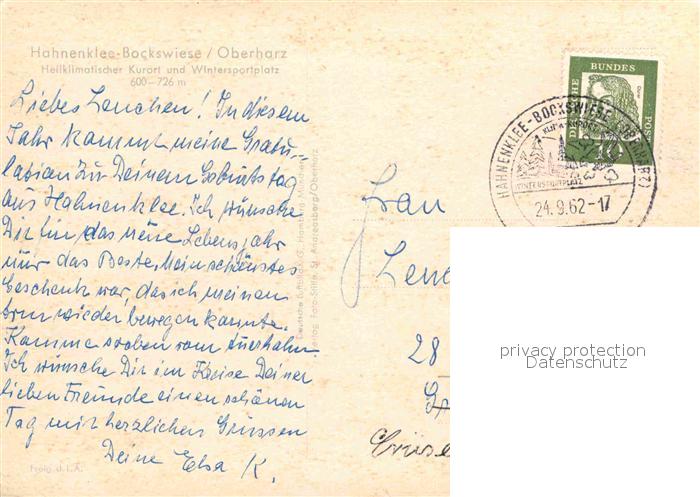 Hahnenklee-Bockswiese / Oberharz
Heilklimatischer Kurort und Wintersportplatz
600-726 m
Liebes Lenchen! In diesem
Jahr kommt meine Gratu-
lation zu Deinem Geburtstag
aus Hahnenklee. Ich wünsche
Dir für das neue Lebensjahr
nur das Beste. Mein schönstes
Geschenk war, das ich meinen
Arm wieder bewegen konnte.
Komme soeben vom Auerhahn.
Ich wünsche Dir im Kreise Deiner
lieben Freunde einen schönen
Tag mit herzlichen Grüssen
Deine Elsa K.
Freig. d. I. A.
DEUTSCHE BUNDESPOST
10
HAHNENKLEE-BOCKSWIESE (OBERHARZ)
WINTERSPORTPLATZ
24.9.62-17
Frau
28
privacy protection
Datenschutz